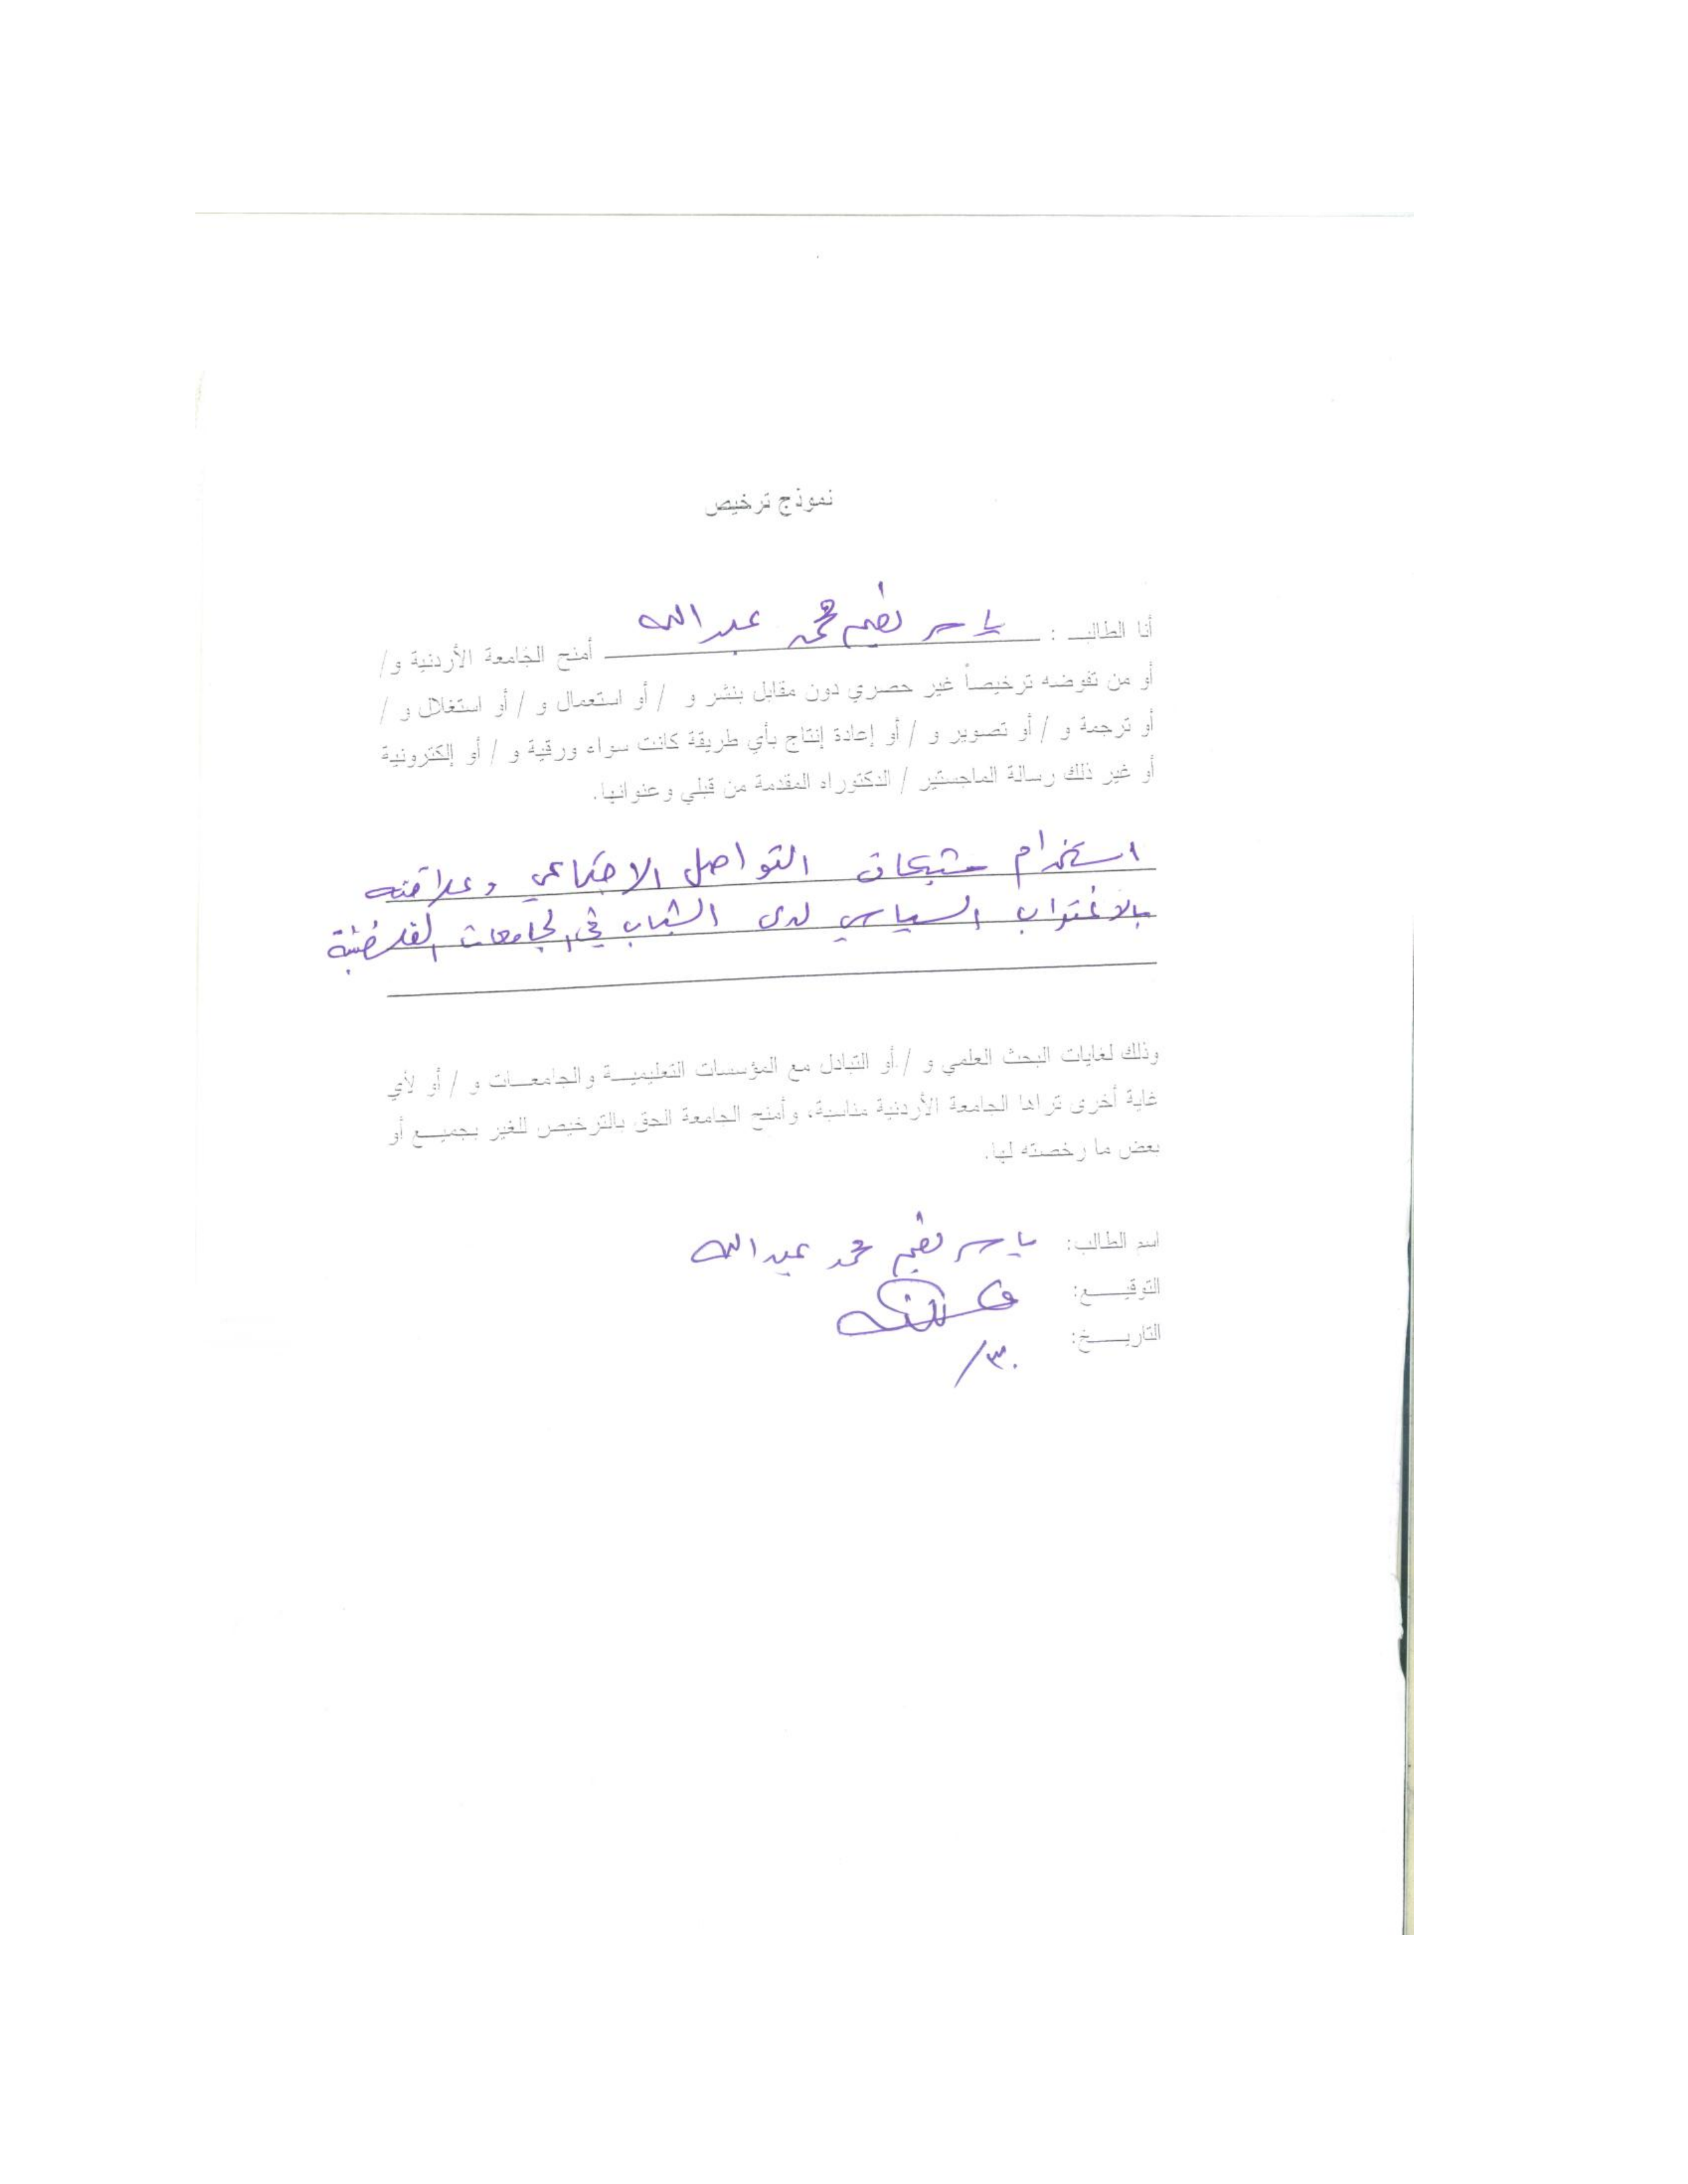 نموذج ترخيص
أنا الطالب : ياسر نعيم محمد عبدالله أمنح الجامعة الأردنية و/
أو من تفوضه ترخيصاً غير حصري دون مقابل بنشر و / أو استعمال و / أو استغلال و /
أو ترجمة و / أو تصوير و / أو إعادة إنتاج بأي طريقة كانت سواء ورقية و / أو إلكترونية
أو غير ذلك رسالة الماجستير / الدكتوراه المقدمة من قبلي وعنوانها.
استخدام شبكات التواصل الاجتماعي وعلاقته
بالاغتراب السياسي لدى الشباب في الجامعات الفلسطينية
وذلك لغايات البحث العلمي و / أو التبادل مع المؤسسات التعليمية والجامعات و / أو لأي
غاية أخرى تراها الجامعة الأردنية مناسبة، وأمنح الجامعة الحق بالترخيص للغير بجميع أو
بعض ما رخصته لها.
اسم الطالب: ياسر نعيم محمد عبدالله
التوقيع:
التاريخ:
٣٠/